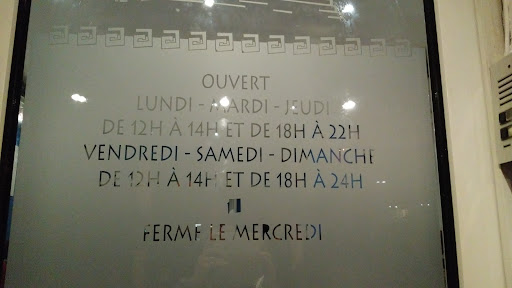 OUVERT
LUNDI - MARDI - JEUDI
DE 12H À 14H ET DE 18H À 22H
VENDREDI - SAMEDI - DIMANCHE
DE 12H À 14H ET DE 18H À 24H
FERME LE MERCREDI